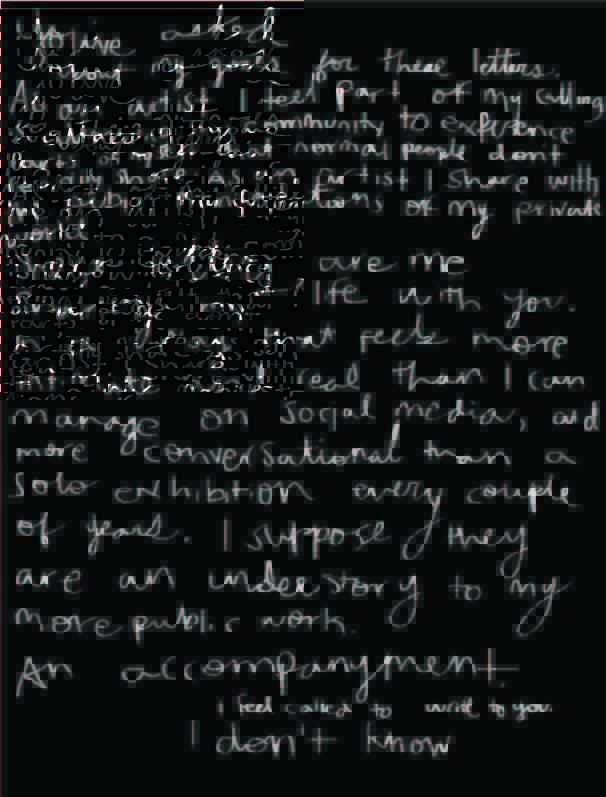 You've asked
about my goals for these letters.
As an artist I feel Part of my calling
community to experience
parts of that normal people don't
typically share. As an artist I share with
my public of my private
world.
are me
my life with you.
In a that feels more
intimate and real than I can
manage on social media, and
more conversational than a
solo exhibition every couple
of years. I suppose they
are an understory to my
more public work.
An accompanyment.
I feel called to write to you.
I don't know